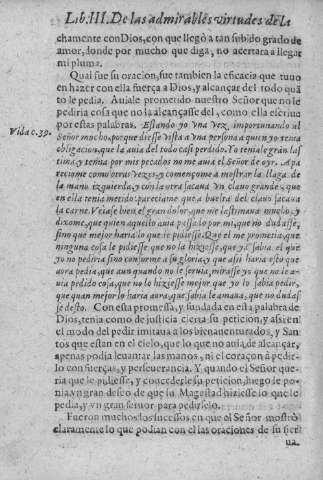 Lib. III. De las admirables virtudes de la
chamente con Dios, con que llegò a tan subido grado de
amor, donde por mucho que diga, no acertara a llegar
mi pluma.
Qual fue su oracion, fue tambien la eficacia que tuuo
en hazer con ella fuerça a Dios, y alcançar del todo quã
to le pedia. Auiale prometido nuestro Señor que no le
pediria cosa que no la alcançasse del, como ella escriuio
por estas palabras. Estando yo vna vez, importunando al
Vida c. 39.
Señor mucho, porque diesse vista a vna persona a quien yo tenia
obligacion, que la auia del todo casi perdido. Yo teniale gran las
tima, y temia por mis pecados no me auia el Señor de oyr. Apa
reciome como otras vezes, y començome a mostrar la llaga de
la mano izquierda, y con la otra sacaua vn clauo grande, que
en ella tenia metido: pareciame que a buelta del clauo sacaua
la carne. Veiase bien el gran dolor, que me lastimaua mucho, y
dixome, que quien aquello auia passado por mi, que no dudasse,
sino que mejor haria lo que le pidiesse. Que el me prometia, que
ninguna cosa le pidiesse que no la hiziesse, que ya sabia el que
yo no pediria sino conforme a su gloria, y que assi haria esto que
aora pedia, que aun quando no le seruia, mirasse yo que no le a-
uia pedido cosa, que no lo hiziesse mejor que yo lo sabia pedir,
que quan mejor lo haria aora, que sabia le amaua, que no dudas
se desto. Con esta promessa, y fundada en esta palabra de
Dios, tenia como de justicia cierta su peticion, y assi en
el modo del pedir imitaua a los bienauenturados, y San
tos que estan en el cielo, que lo que no auia de alcançar,
apenas podia leuantar las manos, ni el coraçon à pedir-
lo con fuerças, y perseuerancia. Y quando el Señor que-
ria que le pidiesse, y concederle su peticion, luego le po-
nia vn gran desseo de que su Magestad hiziesse lo que le
pedia, y vn gran feruor para pedirselo.
Fueron muchos los sucessos en que el Señor mostrò
claramente lo que podian con el las oraciones de su sier
ua.